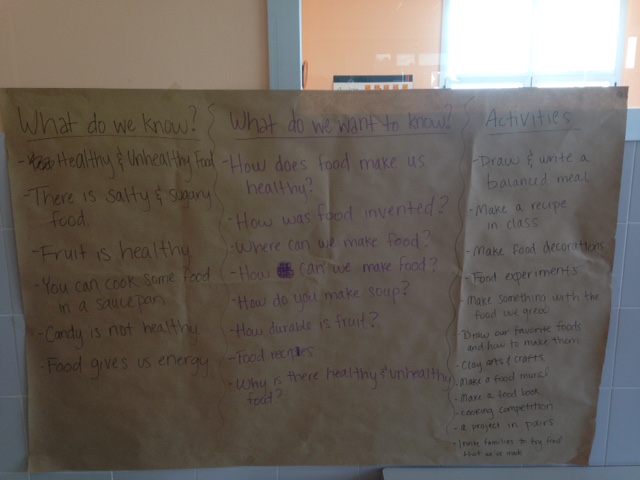 What do we know?
- Healthy & Unhealthy Food
- There is salty & sugary
food
- Fruit is healthy
- You can cook some food
in a saucepan
- Candy is not healthy
- Food gives us energy
What do we want to know?
- How does food make us
healthy?
- How was food invented?
- Where can we make food?
- How can we make food?
- How do you make soup?
- How durable is fruit?
- Food recipies
- Why is there healthy & unhealthy
food?
Activities
- Draw & write a
balanced meal
- Make a recipe
in class
- Make food decorations
- Food experiments
- Make something with the
food we grew
- Draw our favorite foods
and how to make them
- Clay arts & crafts
- Make a food mural
- Make a food book
- cooking competition
- a project in pairs
- Invite families to try food
that we've made